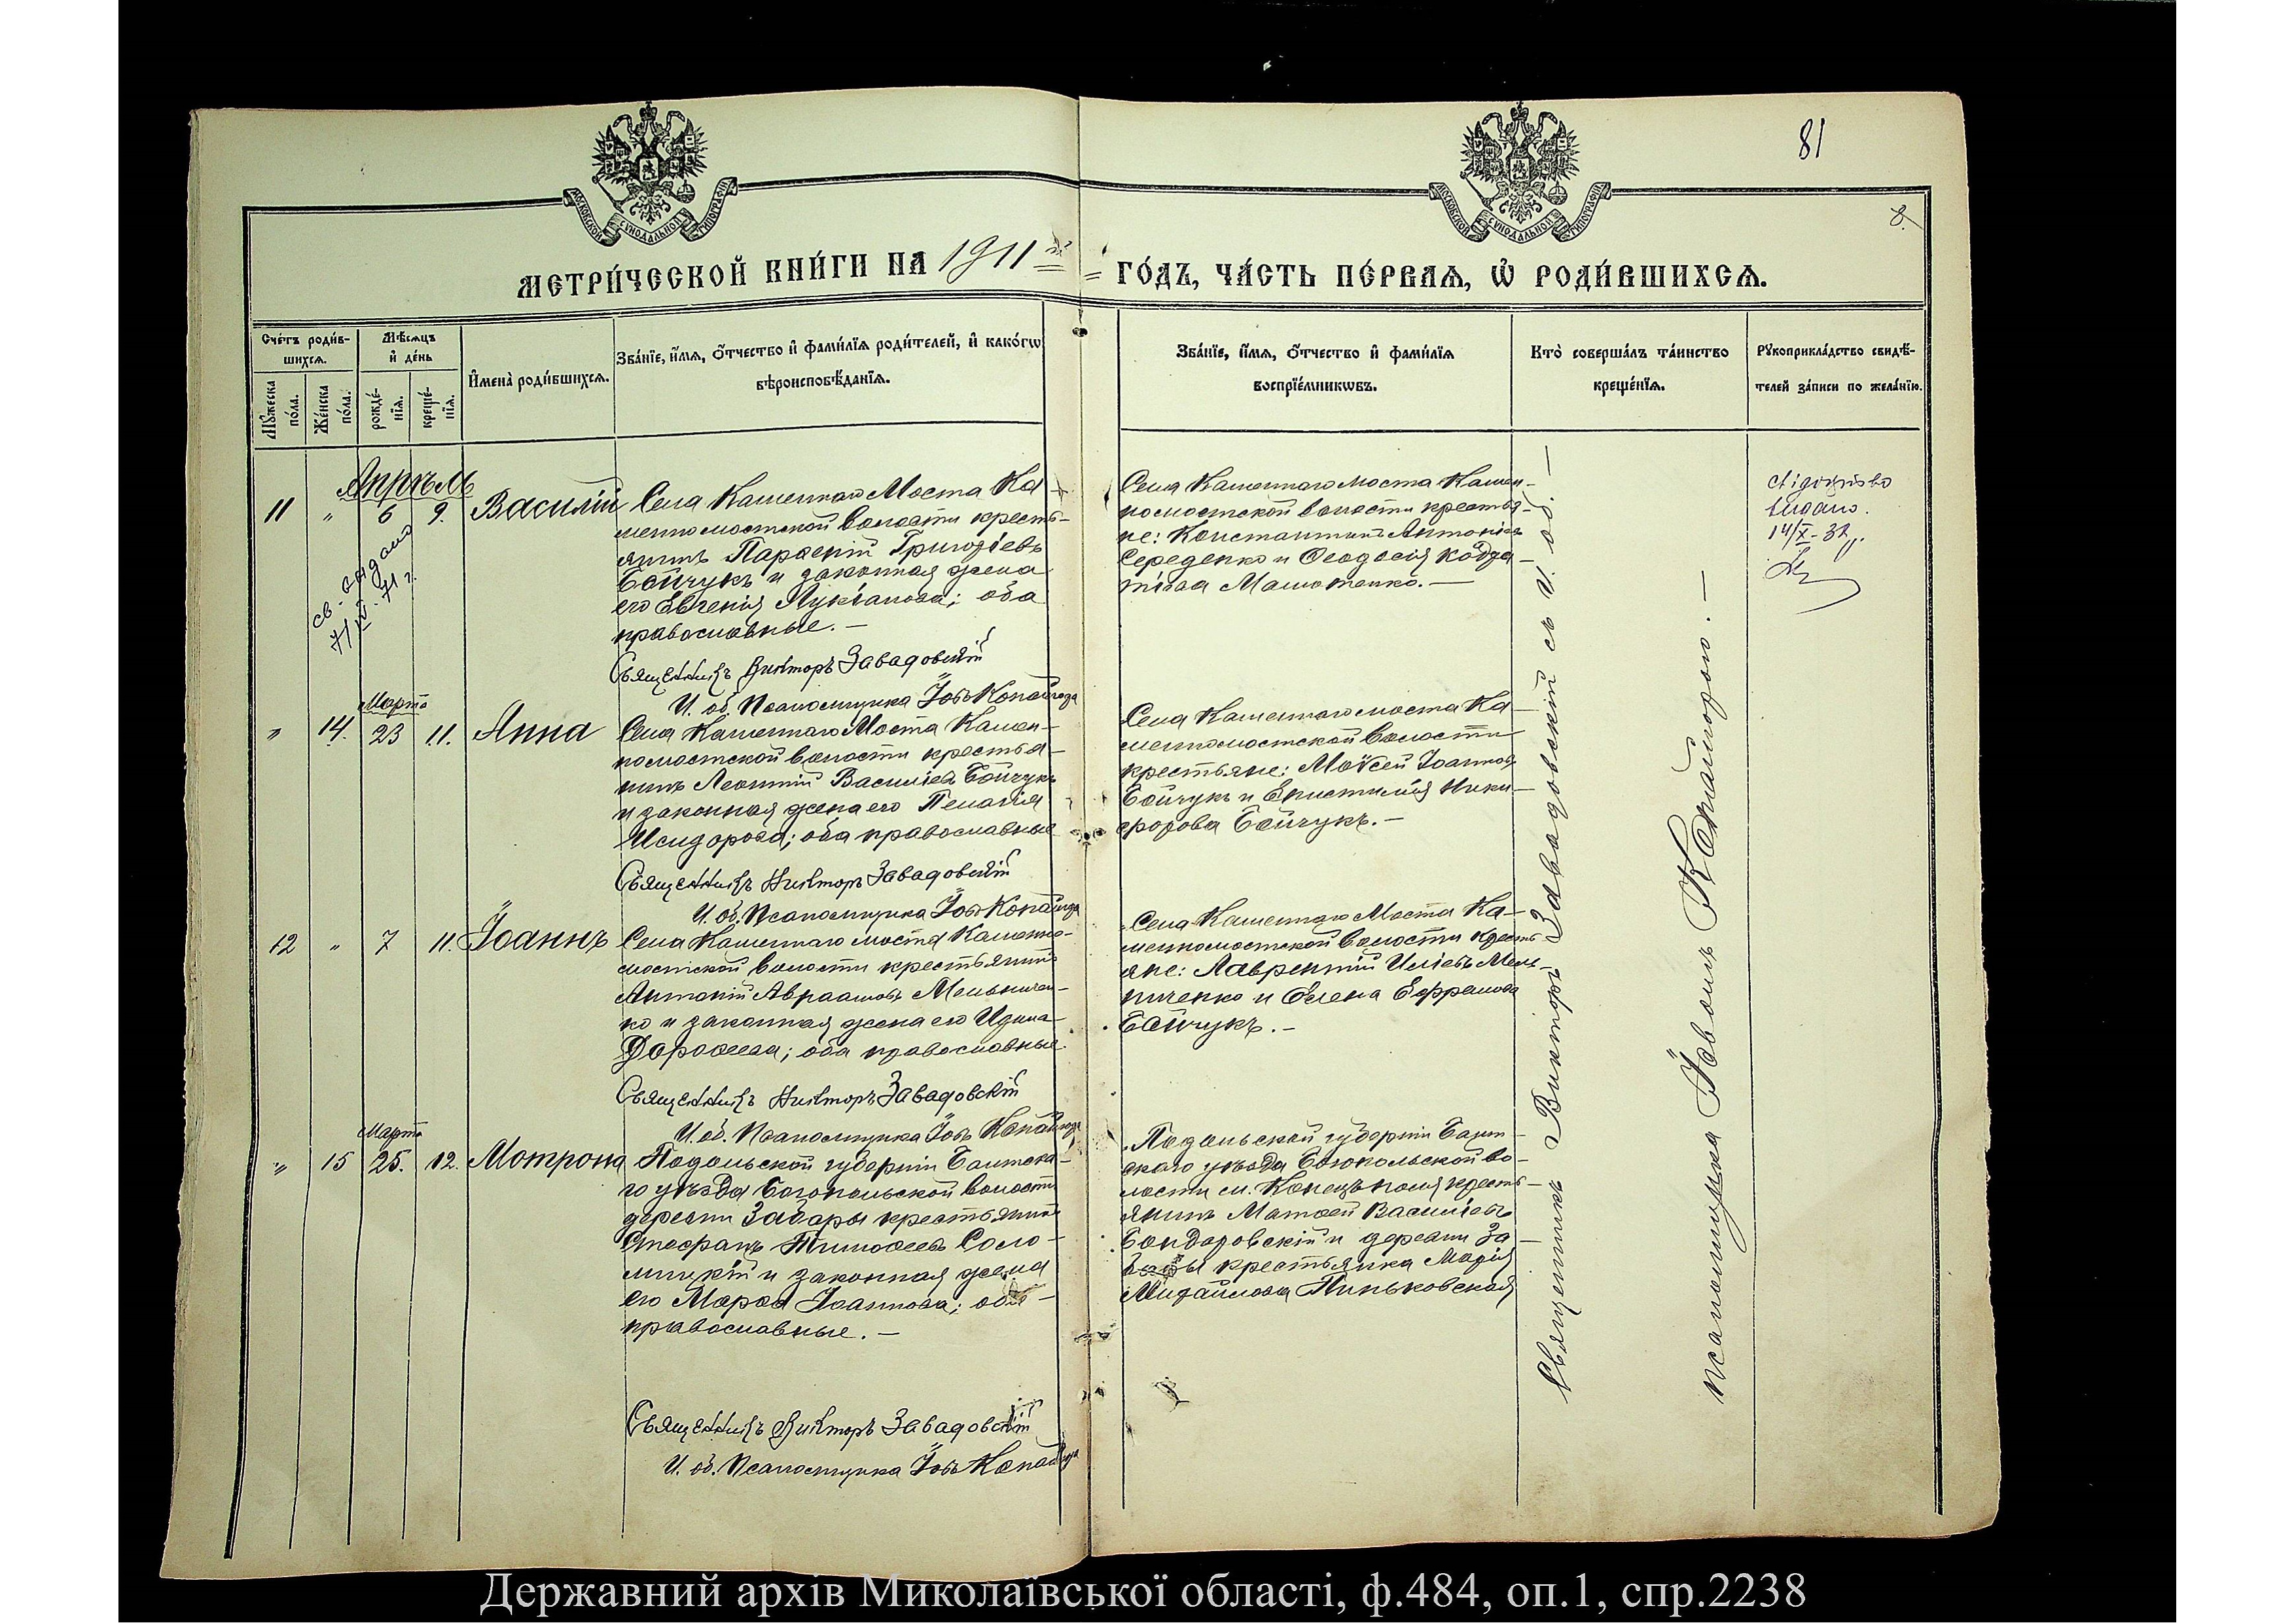 81
8.
МОСКОВСКОЙ СУНОДАЛЬНОЙ ТИПОГРАФІИ
МОСКОВСКОЙ СУНОДАЛЬНОЙ ТИПОГРАФІИ
МЕТРИ́ЧЕСКОЙ КНИ́ГИ НА 1911 й
ГО́ДЪ, ЧА́СТЬ ПЕ́РВАЯ, Ѡ҆ РОДИ́ВШИХСЯ.
Сче́тъ роди́в-
шихся.
Му́жеска по́ла.
Же́нска по́ла.
Мѣ́сяцъ
и҆ де́нь
рожде́-
нїя.
креще́-
нїя.
И҆мена̀ роди́вшихся.
Зва́нїе, и҆́мя, ѻ҆́тчество и҆ фами́лїя роди́телей, и҆ како́гѡ
вѣроисповѣ́данїя.
Зва́нїе, и҆́мя, ѻ҆́тчество и҆ фами́лїя
воспрїе́мникѡвъ.
Кто̀ соверша́лъ та́инство
креще́нїя.
Рукоприкла́дство свидѣ́-
телей за́писи по жела́нїю.
Апрѣль
11 " 6 9. Василій
св. видано
7/IV-71 г.
Села Каменнаго Моста Ка-
менномостской волости кресть-
янинъ Парѳеній Григоріевъ
Бойчукъ и законная жена
его Евгенія Лукіанова; оба
православные. –
Священникъ Викторъ Завадовскій
И. об. Псаломщика Іовъ Копайгода
Села Каменнаго моста Камен-
номостской волости крестья-
не: Константинъ Антоніевъ
Середенко и Ѳеодосія Кодра-
тіева Машотенко. –
свідоцтво
видано.
14/X-32 р.
Марта
" 14. 23 11. Анна
Села Каменнаго Моста Камен-
номостской волости крестья-
нинъ Леонтій Василіевъ Бойчукъ
и законная жена его Пелагія
Исидорова; оба православные
Священникъ Викторъ Завадовскій
И. об. Псаломщика Іовъ Копайгода
Села Каменнаго моста Ка-
менномостской волости
крестьяне: Моѵсей Іоанновъ
Бойчукъ и Епистимія Ники-
форова Бойчукъ. –
12 " 7 11. Іоаннъ
Села Каменнаго моста Каменно-
мостской волости крестьянинъ
Антоній Авраамовъ Мельничен-
ко и законная жена его Ирина
Дороѳеева; оба православные.
Священникъ Викторъ Завадовскій
И. об. Псаломщика Іовъ Копайгода
Села Каменнаго Моста Ка-
менномостской волости кресть-
яне: Лаврентій Иліевъ Мель-
ниченко и Елена Ефремова
Бойчукъ. –
Марта
" 15 25. 12. Мотрона
Подольской губерніи Балтска-
го уѣзда Богопольской волости
деревни Забары крестьянинъ
Стефанъ Тимоѳеевъ Соло-
мицкій и законная жена
его Марѳа Іоаннова; оба
православные. –
Священникъ Викторъ Завадовскій
И. об. Псаломщика Іовъ Копайгода
Подольской губерніи Балт-
скаго уѣзда Богопольской во-
лости м. Конецъполя кресть-
янинъ Матѳей Василіевъ
Бондаровскій и деревни За-
бары крестьянка Марія
Михайлова Пиньковская
Священникъ Викторъ Завадовскій съ и. об. –
псаломщика Іовомъ Копайгодою. –
Державний архів Миколаївської області, ф.484, оп.1, спр.2238